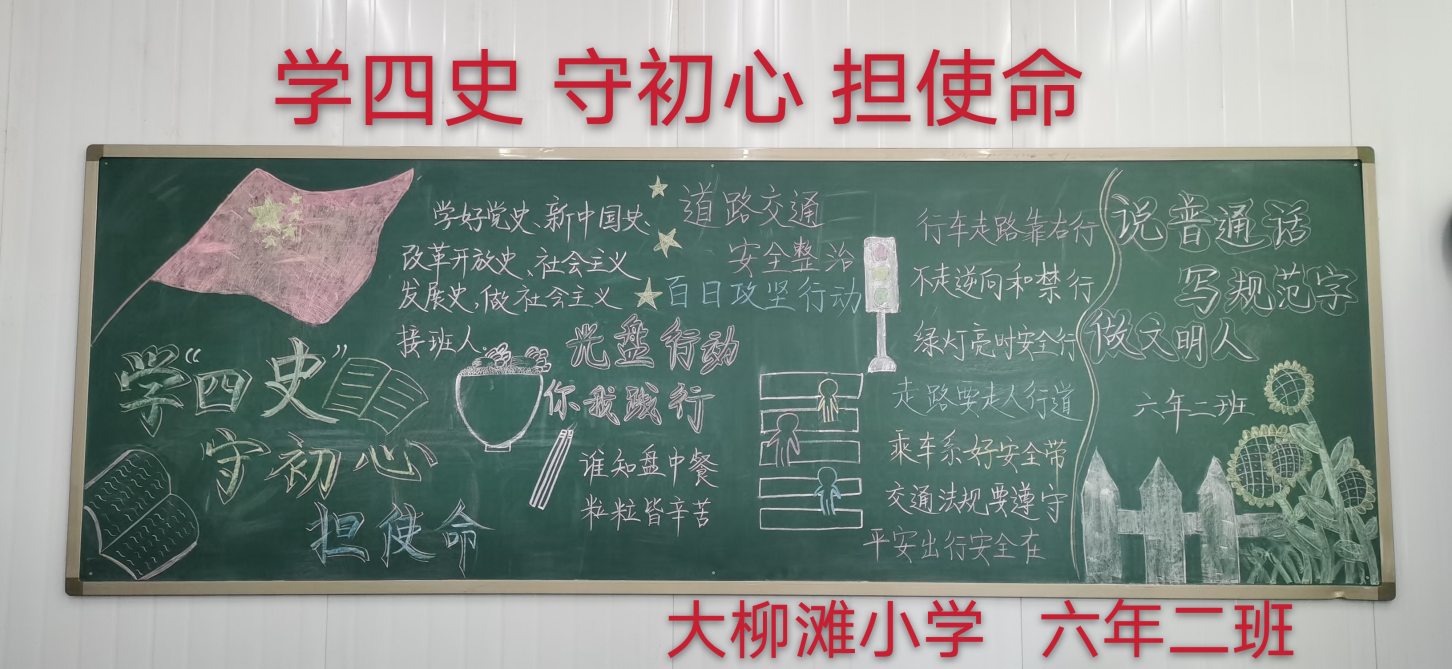 学四史 守初心 担使命
学“四史”
守初心
担使命
学好党史、新中国史、
改革开放史、社会主义
发展史,做社会主义
接班人。
光盘行动
你我践行
谁知盘中餐
粒粒皆辛苦
道路交通
安全整治
百日攻坚行动
行车走路靠右行
不走逆向和禁行
绿灯亮时安全行
走路要走人行道
乘车系好安全带
交通法规要遵守
平安出行安全在
说普通话
写规范字
做文明人
六年二班
大柳滩小学 六年二班